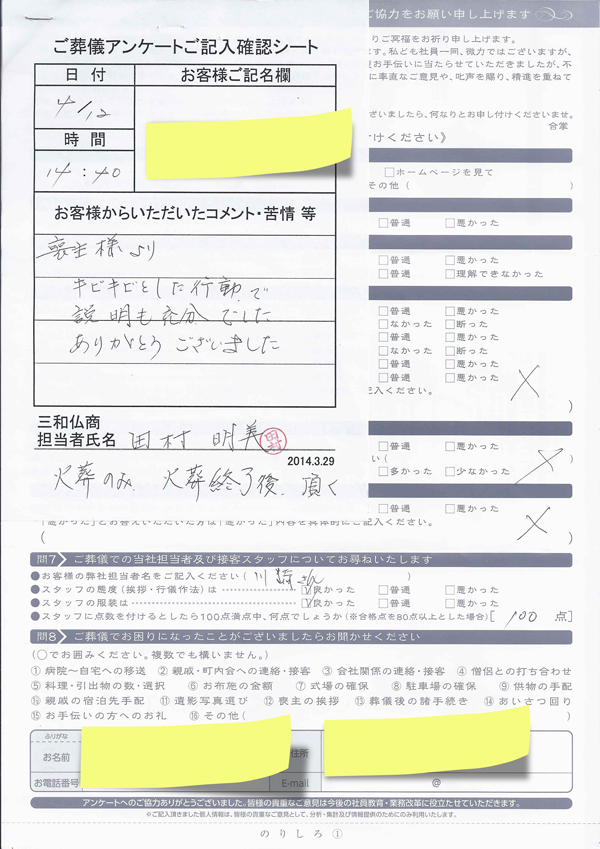 ご協力をお願い申し上げます
ご葬儀アンケートご記入確認シート
りご冥福をお祈り申し上げます。
す。私ども社員一同、微力ではございますが、
お手伝いに当たらせていただきましたが、不
に率直なご意見や、叱声を賜り、精進を重ねて
ざいましたら、何なりとお申し付けくださいませ。
合掌
付けください》
日付
お客様ご記名欄
4/12
時間
14:40
□ホームページを見て
その他( )
お客様からいただいたコメント・苦情 等
□普通 □悪かった
喪主様より
□普通 □悪かった
□普通 □理解できなかった
キビキビとした行動で
説明も充分でした
ありがとうございました
□普通 □悪かった
□なかった □断った
□普通 □悪かった
□なかった □断った
□普通 □悪かった
□普通 □悪かった
記入ください。
)
三和仏商
担当者氏名 田村 明美 田村
2014.3.29
□普通 □悪かった
□多かった □少なかった
火葬のみ 火葬終了後 頂く
□普通 □悪かった
「悪かった」とお答えいただいた方は「悪かった」内容を具体的にご記入ください。
( )
問7 ご葬儀での当社担当者及び接客スタッフについてお尋ねいたします
●お客様の弊社担当者名をご記入ください( 川崎さん )
●スタッフの態度(挨拶・行儀作法)は □良かった □普通 □悪かった
●スタッフの服装は □良かった □普通 □悪かった
●スタッフに点数を付けるとしたら100点満点中、何点でしょうか(※合格点を80点以上とした場合)[ 100 点]
問8 ご葬儀でお困りになったことがございましたらお聞かせください
(○でお囲みください。複数でも構いません。)
①病院〜自宅への移送 ②親戚・町内会への連絡・接客 ③会社関係の連絡・接客 ④僧侶との打ち合わせ
⑤料理・引出物の数・選択 ⑥お布施の金額 ⑦式場の確保 ⑧駐車場の確保 ⑨供物の手配
⑩親戚の宿泊先手配 ⑪遺影写真選び ⑫喪主の挨拶 ⑬葬儀後の諸手続き ⑭あいさつ回り
⑮お手伝いの方へのお礼 ⑯その他( )
ふりがな
お名前
住所
お電話番号
E-mail @
アンケートへのご協力ありがとうございました。皆様の貴重なご意見は今後の社員教育・業務改革に役立たせていただきます。
※ご記入頂きました個人情報は、皆様の貴重なご意見として、分析・集計及び情報提供のためにのみ利用いたします。
のりしろ①